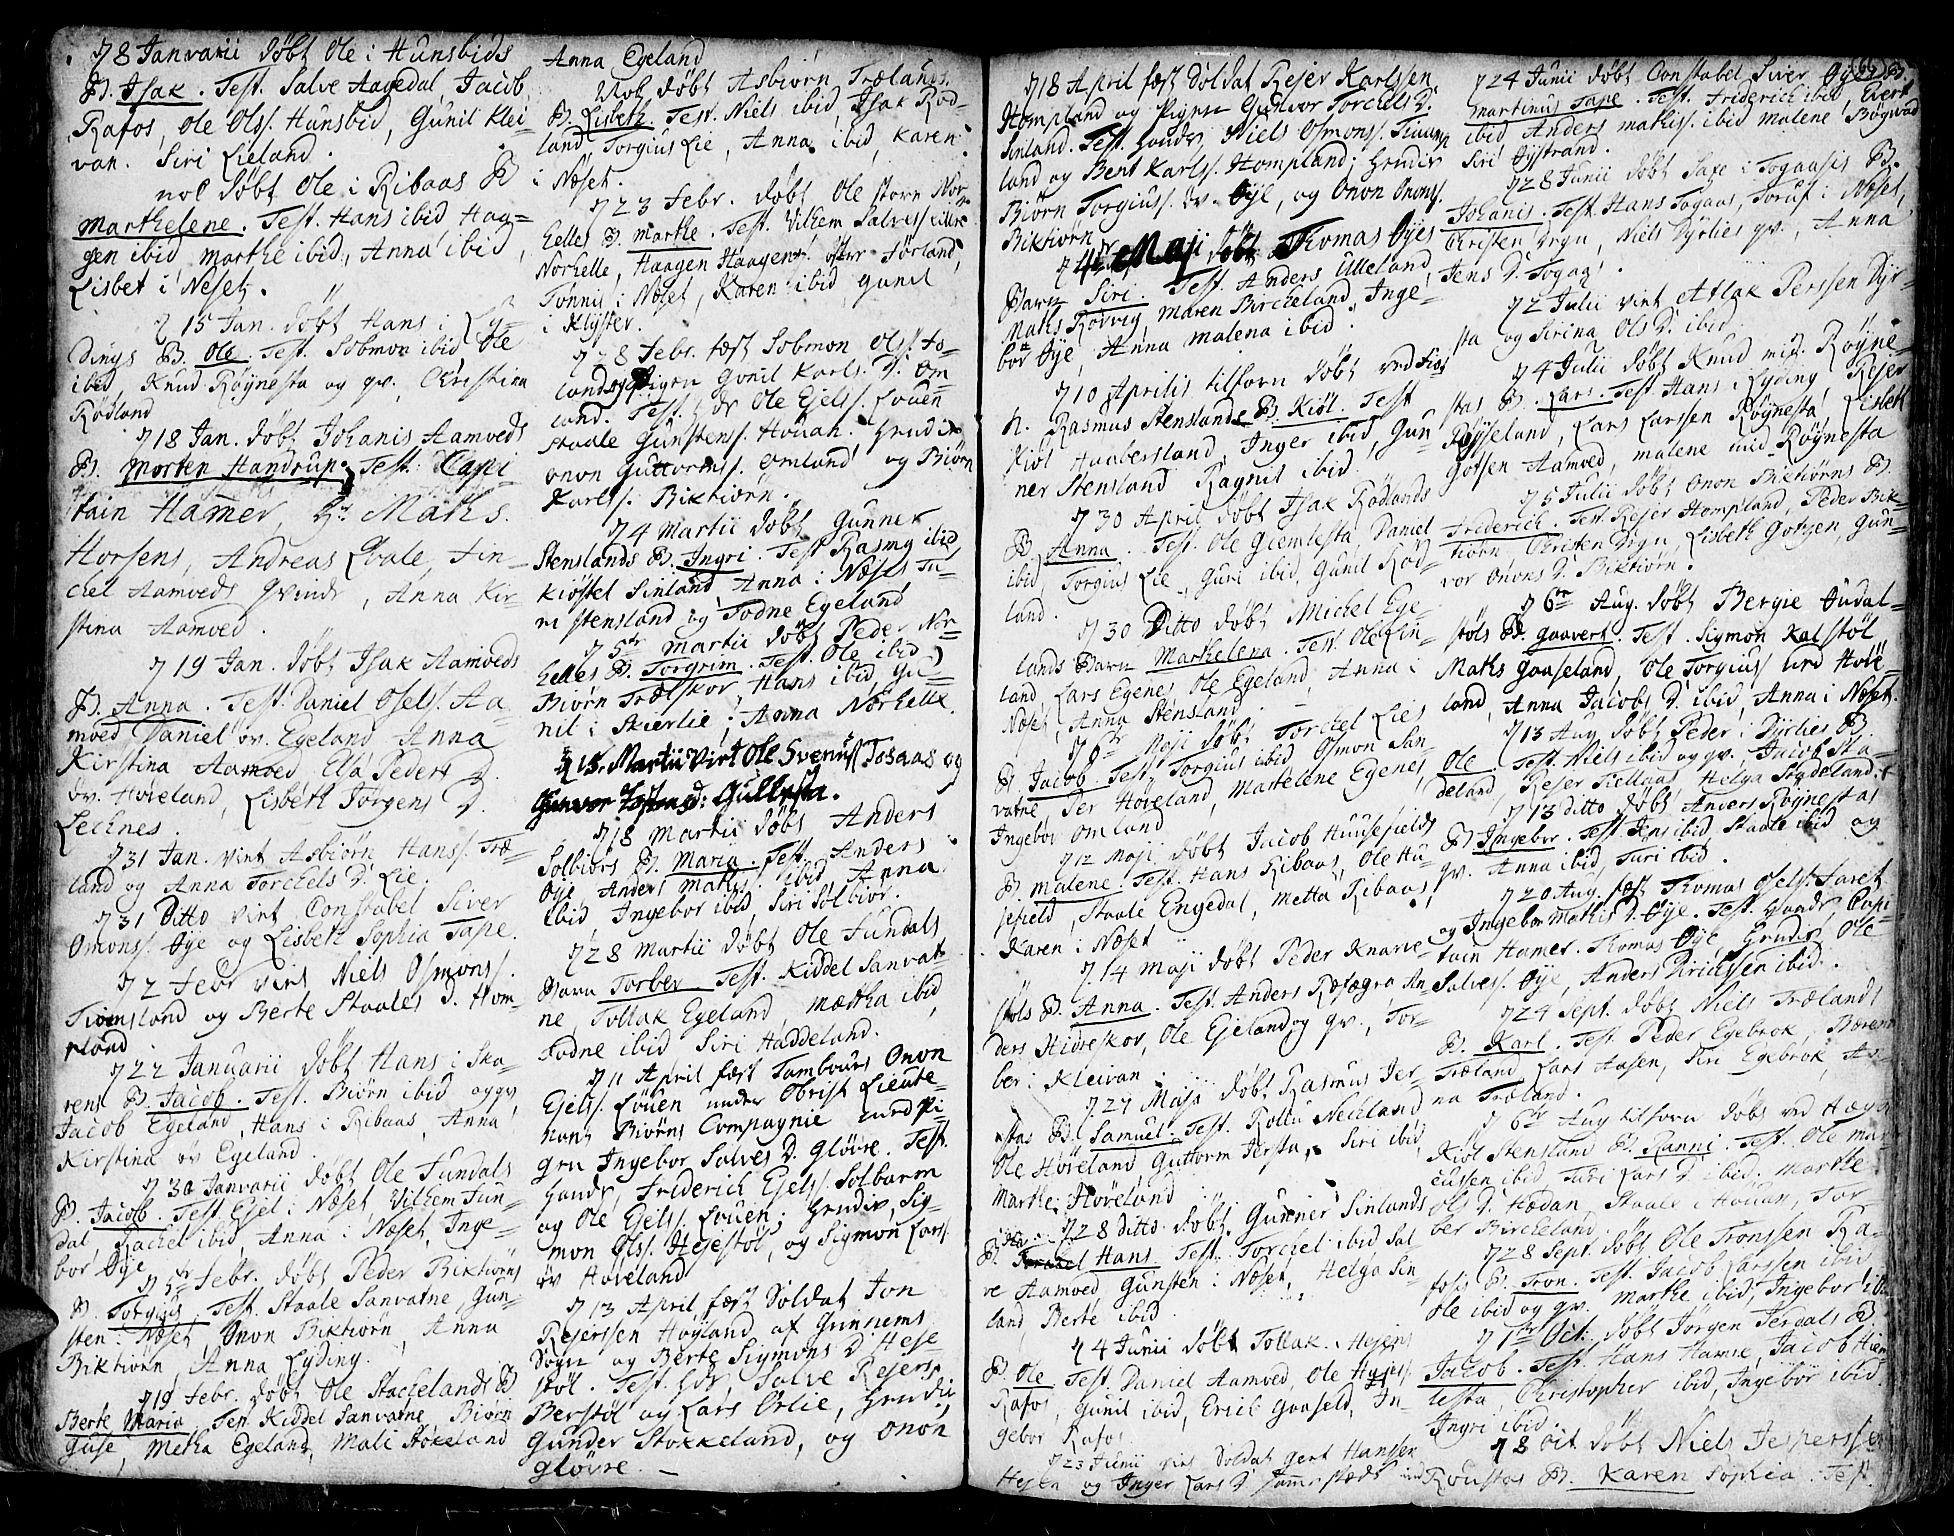 d 8 Janvarii døbt Ole i Hunsbids
B. Isak. Test. Salve Aagedal, Jacob
Rafos, Ole Olss. Hunsbid, Gunil Klei-
van. Siri Lieland.
not døbt Ole i Ribaas B
Marthelene. Test. Hans ibid Haa-
gen ibid Marthe ibid, Anna ibid,
Lisbet i Neset.
d 15 Jan. døbt Hans i Ly-
dings B. Ole. Test. Solmon ibid, Ole
ibid, Knud Røynesta og qv. Christina
Rødland
d 18 Jan. døbt Johanis Aamveds
B. Morten Handrup. Test. Capi
tain Hamer, Hr. Maths.
Horsens, Andreas Qvale, Fin-
chel Aamveds Qvinde, Anna Kir-
stina Aamved.
d 19 Jan. døbt Isak Aamveds
B. Anna. Test. Daniel Osels. Aa-
mved Daniel øv. Egeland Anna
Kirstina Aamved Elsa Peders D.
øv. Høveland, Lisbeth Jørgens D.
Lechnes.
d 31 Jan. virt Asbiørn Hanss. Træ-
land og Anna Torchels D. Lie.
d 31 Ditto virt Constabel Siver
Omonss. Øye og Lisbeth Sophia Tape.
d 2 Febr virt Niels Osmonss.
Tiomsland og Berte Staales D. Hom-
pland
d 22 Januarii døbt Hans i Ska-
rens B. Jacob. Test. Biørn ibid og qv
Jacob Egeland, Hans i Ribaas, Anna
Kirstina øv Egeland.
d 30 Janvarii døbt Ole Sundals
B. Jacob. Test. Ejel i Næset, Vilhem Sun-
dal, Rachel ibid, Anna i Næset, Inge-
bor Øye
d 5te Febr. døbt Peder Biktiørns
B Torgius. Test. Staale Sanvatne, Gun-
sten i Næset, Onon Biktiørn, Anna
Biktiørn, Anna Lyding.
d 19 Febr. døbt Ole Stackelands B
Berte Maria. Test. Kiddel Sanvatne, Biørn
Guse, Metha Egeland, Mali Stokeland
Anna Egeland
Not døbt Asbiørn Trælands
B. Lisbeth. Test. Niels ibid, Isak Rød-
land, Torgius Lie, Anna ibid, Karen
i Næset.
d 23 Febr. døbt Ole storn Nor-
helles B. Marthe. Test. Vilhem Salvess lille
Norhelle, Haagen Haagens. Førland,
Tønnis i Næset, Karen ibid Gunil
i Klyster.
d 28 Febr. fæst Solmon Olss. Ho-
land og Pigen Gonil Karls D. Om
land. Test. Hdr Ole Ejelss. Louen
Staale Gunstenss. Houan. Hendis
Onon Guttormss. Omland og Biørn
Karlss. Biktiørn.
d 4 Martii døbt Gunner
Stenslands B. Ingri. Test. Rasmus ibid
Kiøstel Sinland, Anna i Næset, Tu-
ri Stensland og Todne Egeland
d 5te Martii døbt Peder Nor-
helles B. Torgrim. Test. Ole ibid
Biørn Træskor, Hans ibid, Gu-
nil i Skierlie, Anna Norhelle.
d 15 Martii virt Ole Svenuss Tosaas og
Gunvor d: Gullesta.
d 18 Martii døbt Anders
Solbiors B. Maria. Test. Anders
Øye Anders Mathss. ibid Anna
ibid Ingebor ibid, Siri Solbior.
d 28 Martii døbt Ole Sundals
Barn Torber Test. Kiddel Sanvat-
ne, Tollak Egeland, Mætha ibid,
Todne ibid Siri Haddeland.
d 11 April fæst Tambour Onon
Ejelss. Louen under Obrist Lieute-
nant Biørns Compagnie med Pi-
gen Ingebor Salves D. Gløvre. Test.
Hands, Friderich Ejelss. Solbarm
og Ole Ejelss. Louen; Hendis, Sig-
mon Olss. Hejestøl, og Sigmon Larss.
øv Høveland
d 13 April fæst Soldat Jon
Rejerssen Høyland af Gunnems
Sogn og Berte Sigmons D. Heje
støl. Test. Hds, Salve Rejerss.
Berstøl og Lars Ørlie, Hendis
Gunder Stokkeland, og Onon
Gløvre. —
d 18 April fæst Soldat Rejer Karlssen
Hompland og Pigen Gunvor Torchels D.
Sinland. Test. Hands, Niels Osmonss. Tiaam
land og Bent Karlss. Hompland; Hendis
Biørn Torgiuss. øv. Øye, og Onon Ononss.
Biktiørn
d 4de Maji døbt Thomas Øyes
Barn Siri. Test. Anders Ulleland
Maths Rødvig, Maren Bircheland, Inge-
bor Øye, Anna Malena ibid.
d 10 Aprilis tilforn døbt ved
h. Rasmus Stenslands B. Kiøl. Test
Kiøl Haabersland, Inger ibid, Gun
ner Stensland Ragnil ibid.
d 30 April døbt Isak Rødlands
B. Anna. Test. Ole Giemlesta, Daniel
ibid Torgius Lie, Guri ibid, Gunil Rød-
land.
d 30 Ditto døbt Michel Ege
lands Barn Marthelena. Test. Ole Lin-
land, Lars Egenes, Ole Egeland, Anna i
Næset, Anna Stensland
d 6te Maji døbt Torchel Lies
B Jacob. Test. Torgius ibid Osmon San-
vatne Per Høveland, Marthelene Egenes
Ingebor Omland
d 12 Maji døbt Jacob Huusefields
B Malene. Test. Hans Ribaas, Ole Hu-
sefield, Staale Engedal, Metta Ribaas
Karen i Næset
d 14 Maji døbt Peder Knarre-
støls B. Anna. Test. Anders Refægra An-
ders Hidreskov, Ole Ejeland og qv., Tor-
ber i Kleivan.
d 27 Maji døbt Rasmus Jer-
stas B. Samuel. Test. Rollu Neckland
Ole Høveland Guttorm Jersta, Siri ibid,
Marthe Høveland
d 28 Ditto døbt Gunner Sinlands
B. Hans. Test. Torchel ibid Sal
ve Aamoed, Gunsten i Næset, Helga Sin-
land, Berte ibid.
d 4 Junii døbt Tollak Hejens
B. Ole Test. Daniel Aamoed, Ole Hejels
Rafos, Gunil ibid, Erich Gaaseld, In-
gebor Rafos
d 23 Junii virt Soldat Gert Hansen
Hejen og Inger Lars D. sammestæds
d 24 Junii døbt Constabel Siver Øyes B.
Martinus Tape. Test. Friderich ibid, Evert
ibid Anders Mathiss. ibid Malene Bøgvad
Siri Øystrand.
d 28 Junii døbt Saxe i Togaasis B.
Johanis. Test. Hans Togaas, Toruf i Næset,
Christen Dogn, Niels Dyrlies qv., Anna
Jens D. Togaas.
d 2 Julii virt Atlak Perssen Dyr-
sta og Sirina Ols D. ibid
d 4 Julii døbt Knud mid. Røyne-
stas B. Lars. Test. Hans i Lyding Rejer
Røyseland, Lars Larssen Røynesta, Lisbeth
Gotsen Aamoed, Malene mid Røynesta
d 5 Julii døbt Onon Biktiørns B
Friderich. Test. Rejer Hompland, Peder Bik-
tiørn, Christen Dogn, Lisbeth Gotzen, Gun-
vor Onons D. Biktiørn.
d 6te Aug. døbt Bergie Øudal-
støls B. Gaavert. Test. Sigmon Kalstøl
Maths Gaaseland, Ole Torgiuss lird Høie-
land, Anna Jacobs D. ibid, Anna i Næset.
d 13 Aug døbt Peder i Dyrlies B
Ole. Test. Niels ibid og qv., Jacob Sta-
deland, Rejer Fiellaas, Helga Stadeland.
d 13 Ditto døbt Anders Røynestas
B Ingebor. Test. Jens ibid, Staale ibid og
qv. Anna ibid, Turi ibid.
d 20 Aug. fæst Thomas Oselss. Faret
og Ingebor Mathis D. Øye. Test. Hands, Capi-
tain Hamer. Thomas Øye, Hendis Ole
Salvess. Øye, Anders Dirichssen ibid.
d 24 Sept. døbt Niels Trælands
B. Karl. Test. Peder Egebrok, Børenn
Træland, Lars Aasen, Siri Egebrok, An-
na Træland.
d 6te Aug tilforn døbt ved Hægg.
Kiøl Stensland B. Ranni. Test. Ole Mar-
cussen ibid, Turi Lars D. ibid. Marthe
Ols D. Hædan, Staale i Houan, Tor-
ber Bircheland,
d 28 Sept. døbt Ole Tronssen Ra-
foss B. Tron. Test. Jacob Larssen ibid
Ole ibid og qv. Marthe ibid, Ingebor ibid
d 1te Oct. døbt Jørgen Jerdals B.
Jacob. Test. Hans Hamre, Jacob Hiem-
lesta, Christopher ibid, Ingebor ibid.
Ingri ibid.
d 8 Oct. døbt Niels Jespersen
Roustas B. Karen Sophia. Test.